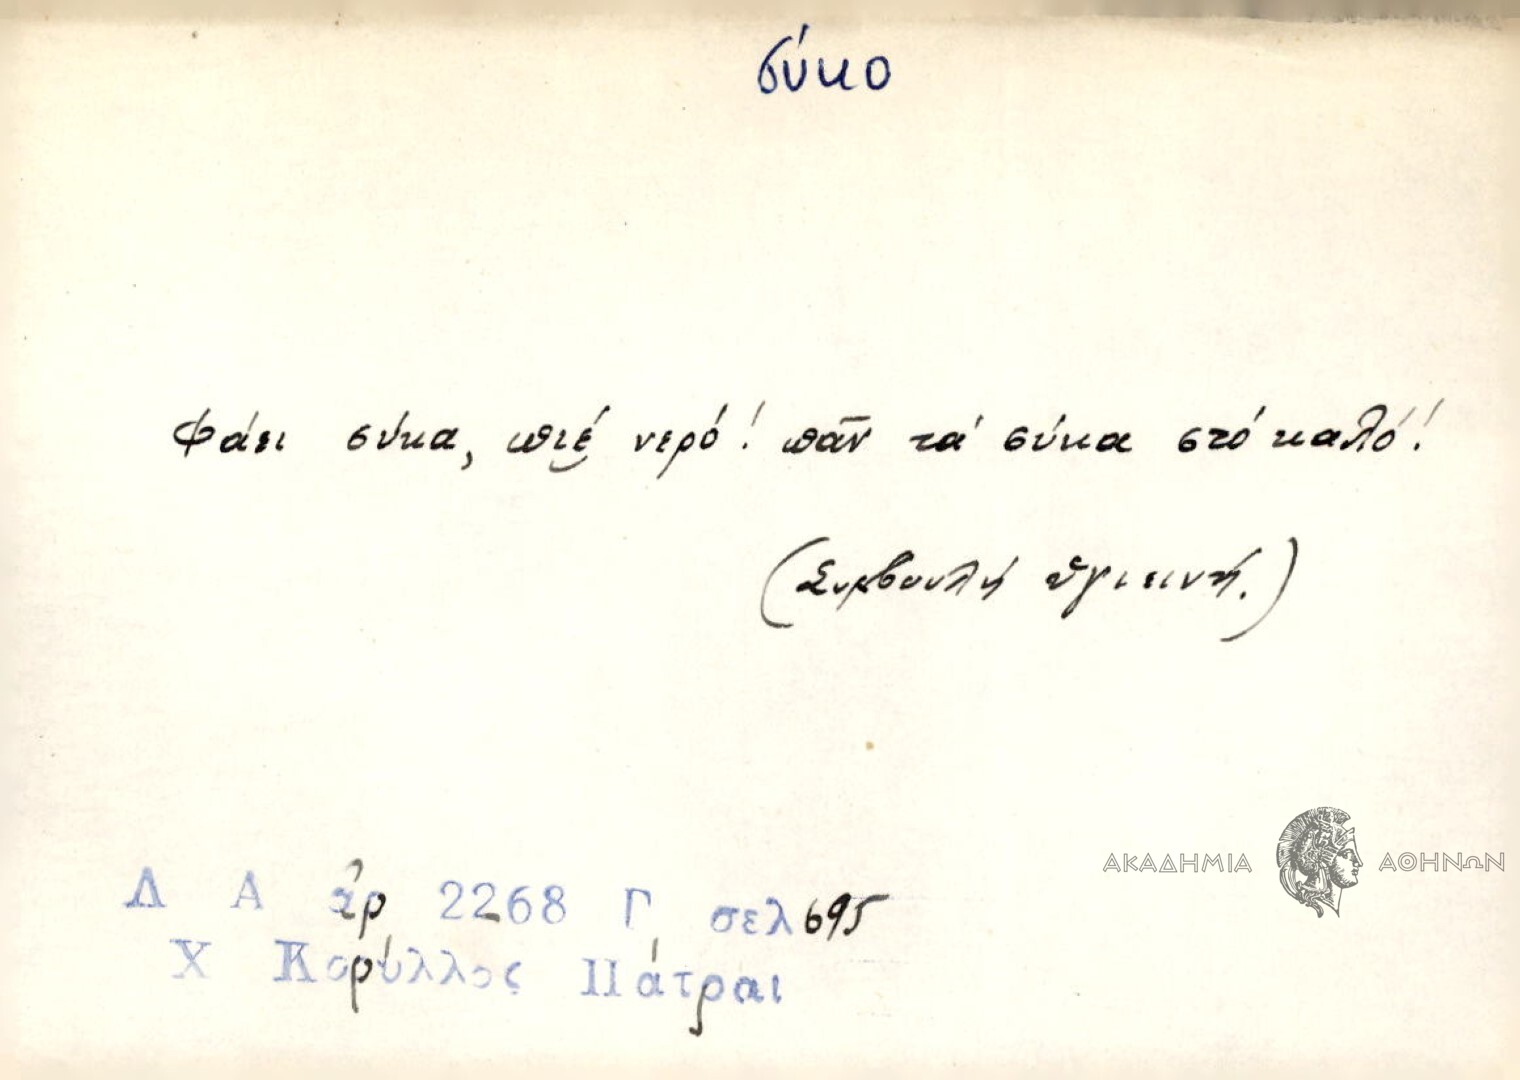 σύκο
Φάει σύκα, πιέ νερό! πᾶν τά σύκα στό καλό!
(Συμβουλή ὑγιεινή.)
ΑΚΑΔΗΜΙΑ ΑΘΗΝΩΝ
Λ Α ἀρ 2268 Γ σελ 695
Χ Κορύλλος Πάτραι